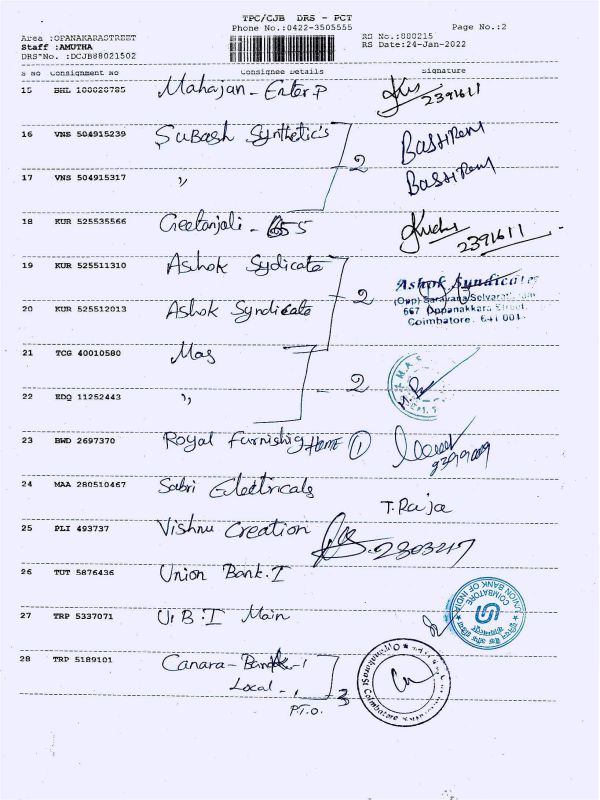 TPC/CJB DRS - PCT
Phone No.:0422-3505555
Page No.:2
Area :OPANAKARASTREET
RS No.:800215
Staff :AMUTHA
RS Date:24-Jan-2022
DRS No. :DCJB88021502
S No Consignment No Consignee Details Signature
15 BHL 100020785 Mahajan - Enter.P
2391611
16 VNS 504915239 Subash Synthetic's
2
17 VNS 504915317 "
18 KUR 525535566 Geetanjali -
2391611
19 KUR 525511310 Ashok Sydicate
2
Ashok Syndicate
(Opp) Saravana Selvarat
667 Oppanakkara Street,
Coimbatore. 641 001.
20 KUR 525512013 Ashok Syndicate
21 TCG 40010580 Mas
- 2
22 EDQ 11252443 "
23 BWD 2697370 Royal Furnishig Home 1
24 MAA 280510467 Sabri Electricals
T. Raja
25 PLI 493737 Vishnu Creation
2303217
26 TUT 5876436 Union Bank. I
UNION BANK OF INDIA
COIMBATORE
27 TRP 5337071 U.B.I Main
28 TRP 5189101 Canara - Bank - 1
Local - 1
3
P.T.O.
Coimbatore